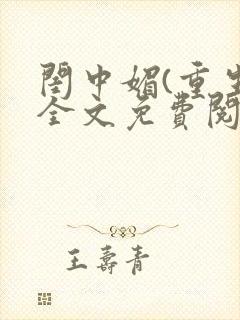 閨中媚(重生
全文免費閱
王壽青